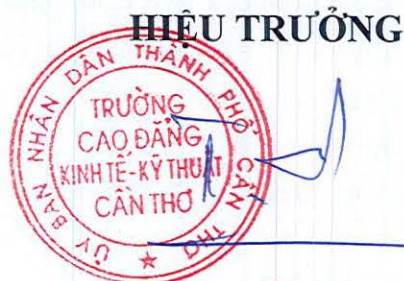 HIỆU TRƯỞNG
ỦY BAN NHÂN DÂN THÀNH PHỐ CẦN THƠ
TRƯỜNG
CAO ĐẲNG
KINH TẾ-KỸ THUẬT
CẦN THƠ